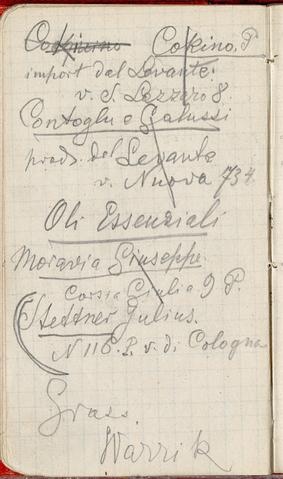 Cokino. P.
import dal Levante.
v. S. Lazzaro 8.
Contoglu e Galussi
prod. del Levante
v. Nuova 734.
Oli Essenziali
Moravia Giuseppe.
Corsia Giulia 9 P.
Stettner Julius.
N 116. P. v. di Cologna
Grass.
Warrik